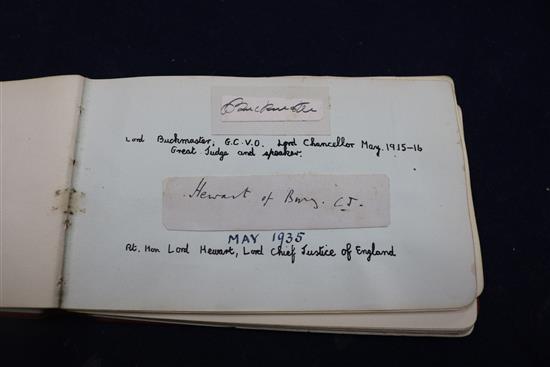 Buckmaster
Lord Buckmaster, G.C.V.O. Lord Chancellor May. 1915-16
Great Judge and speaker.
Hewart of Bury. CJ.
MAY 1935
Rt. Hon Lord Hewart, Lord Chief Justice of England